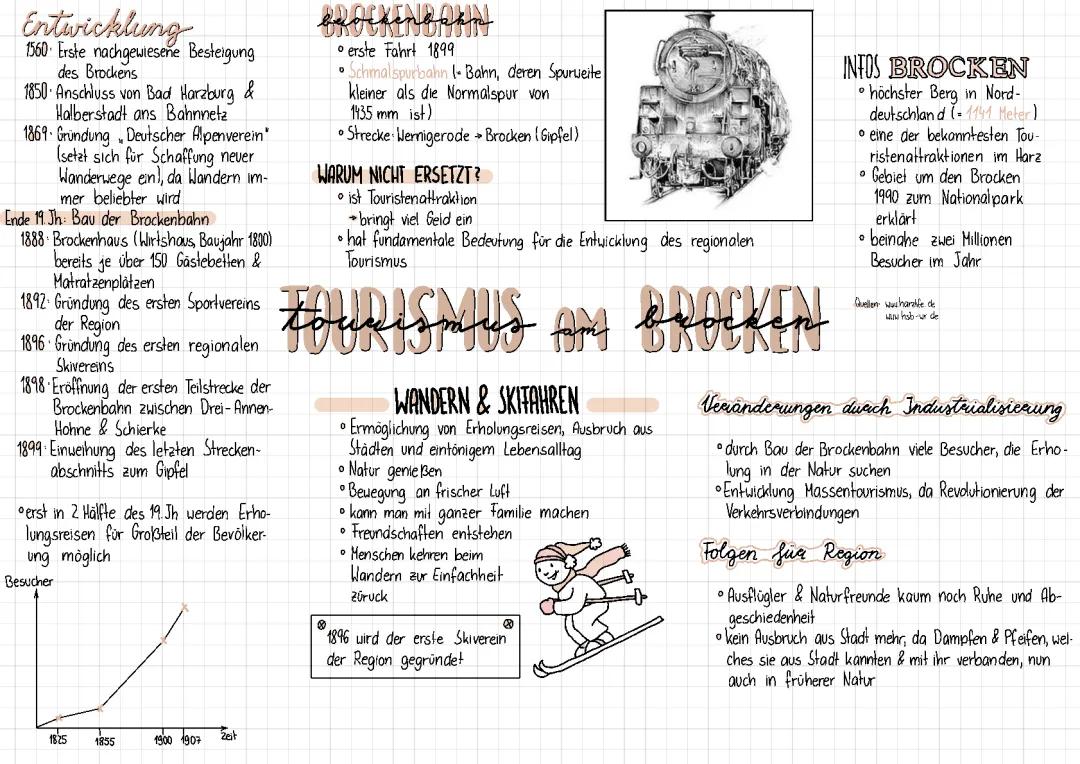 Entwicklung
1560: Erste nachgewiesene Besteigung
des Brockens
1850: Anschluss von Bad Harzburg &
Halberstadt ans Bahnnetz
1869: Gründung „Deutscher Alpenverein"
(setzt sich für Schaffung neuer
Wanderwege ein), da Wandern im-
mer beliebter wird
Ende 19. Jh: Bau der Brockenbahn
1888: Brockenhaus (Wirtshaus, Baujahr 1800)
bereits je über 150 Gästebetten &
Matratzenplätzen
1892: Gründung des ersten Sportvereins
der Region
1896: Gründung des ersten regionalen
Skivereins
1898: Eröffnung der ersten Teilstrecke der
Brockenbahn zwischen Drei-Annen-
Hohne & Schierke
1899: Einweihung des letzten Strecken-
abschnitts zum Gipfel
° erst in 2. Hälfte des 19. Jh werden Erho-
lungsreisen für Großteil der Bevölker-
ung möglich
Besucher
1825 1855 1900 1907 Zeit
BROCKENBAHN
brockenbahn
° erste Fahrt 1899
° Schmalspurbahn (= Bahn, deren Spurweite
kleiner als die Normalspur von
1435 mm ist)
° Strecke: Wernigerode → Brocken (Gipfel)
WARUM NICHT ERSETZT?
° ist Touristenattraktion
→ bringt viel Geld ein
° hat fundamentale Bedeutung für die Entwicklung des regionalen
Tourismus
INFOS BROCKEN
° höchster Berg in Nord-
deutschland (= 1141 Meter)
° eine der bekanntesten Tou-
ristenattraktionen im Harz
° Gebiet um den Brocken
1990 zum Nationalpark
erklärt
° beinahe zwei Millionen
Besucher im Jahr
Quellen: www.harzlife.de
www.hsb-wr.de
TOURISMUS AM BROCKEN
tourismus am brocken
WANDERN & SKIFAHREN
° Ermöglichung von Erholungsreisen, Ausbruch aus
Städten und eintönigem Lebensalltag
° Natur genießen
° Bewegung an frischer Luft
° kann man mit ganzer Familie machen
° Freundschaften entstehen
° Menschen kehren beim
Wandern zur Einfachheit
züruck
1896 wird der erste Skiverein
der Region gegründet
Veränderungen durch Industrialisierung
° durch Bau der Brockenbahn viele Besucher, die Erho-
lung in der Natur suchen
° Entwicklung Massentourismus, da Revolutionierung der
Verkehrsverbindungen
Folgen für Region
° Ausflügler & Naturfreunde kaum noch Ruhe und Ab-
geschiedenheit
° kein Ausbruch aus Stadt mehr, da Dampfen & Pfeifen, wel-
ches sie aus Stadt kannten & mit ihr verbanden, nun
auch in früherer Natur